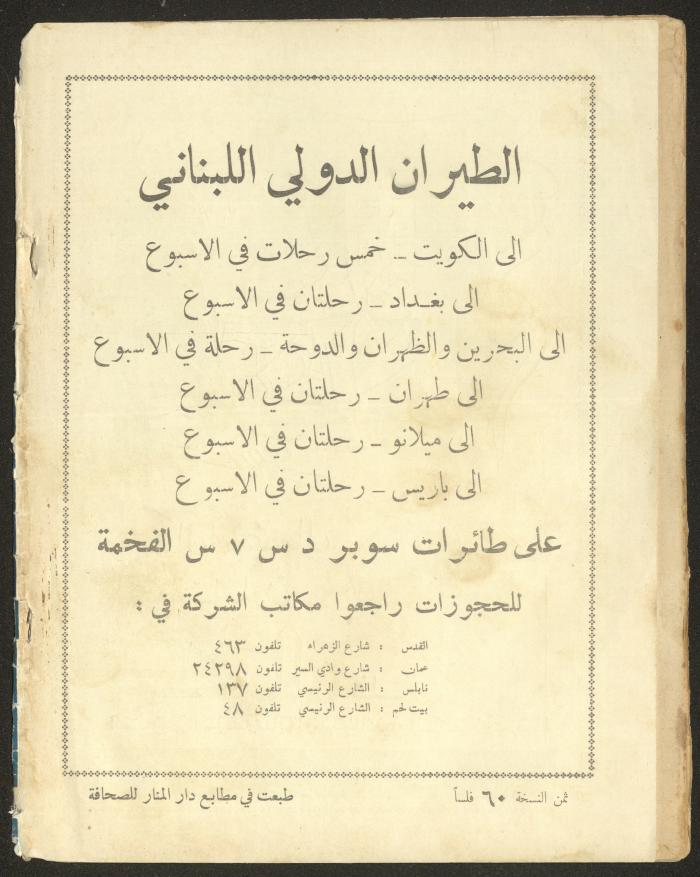 الطيران الدولي اللبناني
الى الكويت – خمس رحلات في الاسبوع
الى بغداد – رحلتان في الاسبوع
الى البحرين والظهران والدوحة – رحلة في الاسبوع
الى طهران – رحلتان في الاسبوع
الى ميلانو – رحلتان في الاسبوع
الى باريس – رحلتان في الاسبوع
على طائرات سوبر د س ٧ س الفخمة
للحجوزات راجعوا مكاتب الشركة في :
القدس : شارع الزهراء تلفون ٤٦٣
عمان : شارع وادي السير تلفون ٢٤٢٩٨
نابلس : الشارع الرئيسي تلفون ١٣٧
بيت لحم : الشارع الرئيسي تلفون ٤٨
ثمن النسخة ٦٠ فلساً طبعت في مطابع دار المنار للصحافة